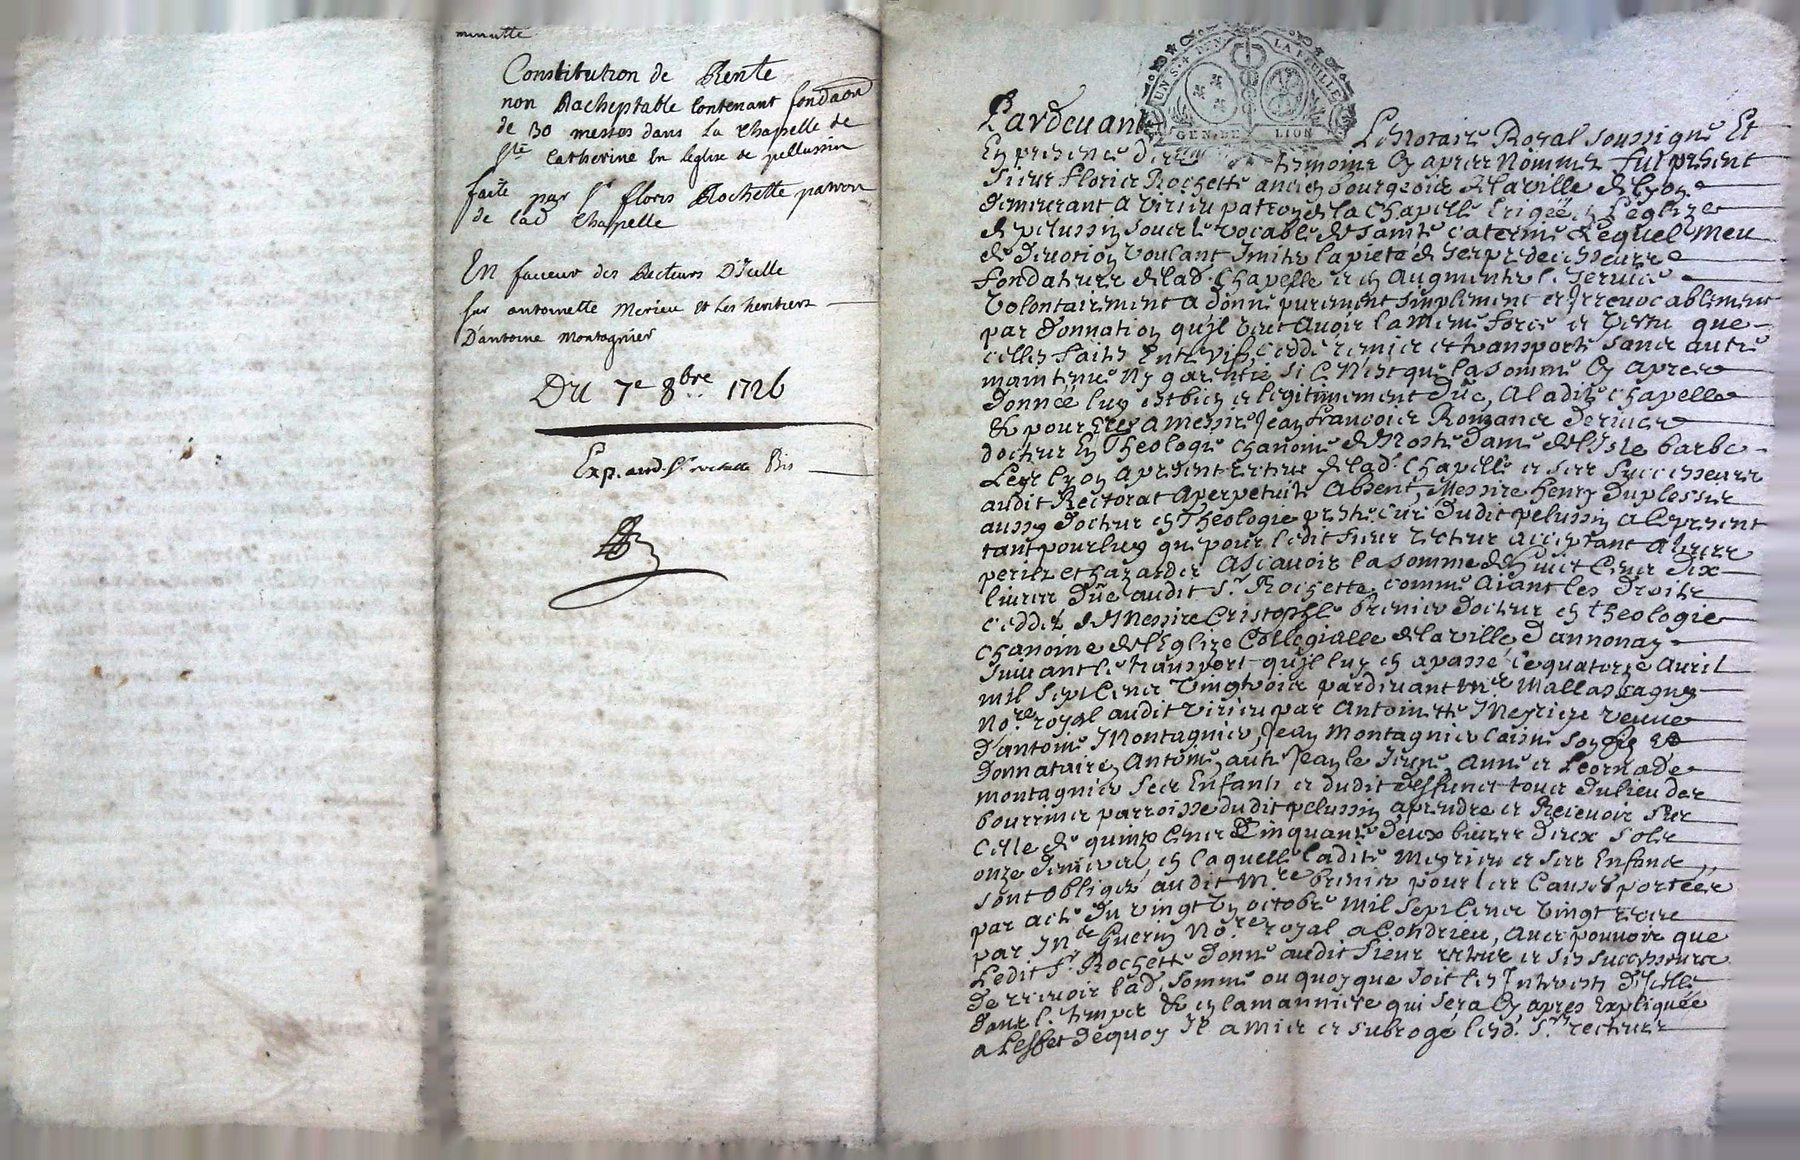 minutte
Constitution de Rente
non Racheptable Contenant fondaon
de 30 messes dans La Chappelle de
Ste Catherine En leglise de pellussin
faite par Sr floris Rochette patron
de lad Chappelle
En faueur des Recteurs D'Icelle
sur antoinette Merieu et Les heritiers
D'antoine Montagnier
Du 7e 8bre 1726
Exp. aud. Sr rochette Bis
UN S. 4 DEN LA FEUILLE
GEN. DE LION
Pardeuant Le Notaire Royal soussigné Et
En presence des temoins Cy apres Nommez fut present
sieur Floris Rochette ancien bourgeois de la ville de lyon
demeurant a Virieu patron de la Chapelle Erigée En l'eglize
de pelussin sous le vocable de sainte Caterine Lequel meu
de deuotion voulant Imiter la pieté de ses predecesseurs
fondateurs de lad. Chapelle et en Augmenter le seruice
Volontairement a donné purement simplement et Irreuocablement
par donnation qu'jl veut auoir la meme force et vertu que
celles faites Entre vifs, ceddé remis et transporté sans autre
maintenue Ny garentie si Ce N'est que la somme Cy apres
donneé luy est bien et legitimement Dûe, A ladite Chapelle
& pour Elle a Messire Jean François
docteur En Theologie Chanoine de Nostre Dame de l'Isle barbe
Lez lyon apresent recteur de lad. Chapelle et ses Successeurs
audit Rectorat a perpetuité Absent, Messire henry Duplessis
aussy docteur en Theologie prestre curé dudit pelussin a Ce present
tant pour luy que pour ledit sieur recteur acceptant a leurs
perils et hazardes Ascauoir la somme de huit Cens Dix
liures Dûe audit Sr. Rochette, comme aiant les droits
ceddez de Messire Cristophle brenier docteur en theologie
chanoine de l'Eglize Collegialle de la ville d'annonay
suiuant le transport qu'jl luy en a passé le quatorze Auril
mil sept Cens vingt trois pardeuant Me Mallassagny
No.re royal audit virieu par Antoinette Meyrieu veuue
d'antoine Montagnier, Jean Montagnier laisné son fils et
donnataire, Antoine, autre Jean le Jeune, Anne et Leonnade
montagnier ses Enfants et dudit deffunct tous du lieu des
bourrines parroisse dudit pelussin, aprendre et Receuoir sur
Celle de quinze Cens Cinquante Deux liures deux sols
onze deniers en Laquelle ladite Meyrieu et ses Enfans
sont obligez audit M.re brenier pour les Causes portées
par acte du vingt Un octobre mil sept Cens vingt
par Me Guerin No.re royal a Condrieu, Auec pouuoir que
Ledit Sr. Rochette donne audit sieur recteur et ses successeurs
de receuoir lad. somme ou quoy que soit les Interests d'Icelle
dans le temps & en la manniere qui sera Cy apres Expliquée
a L'effet dequoy Il a mis et subrogé lesd. Srs. recteurs